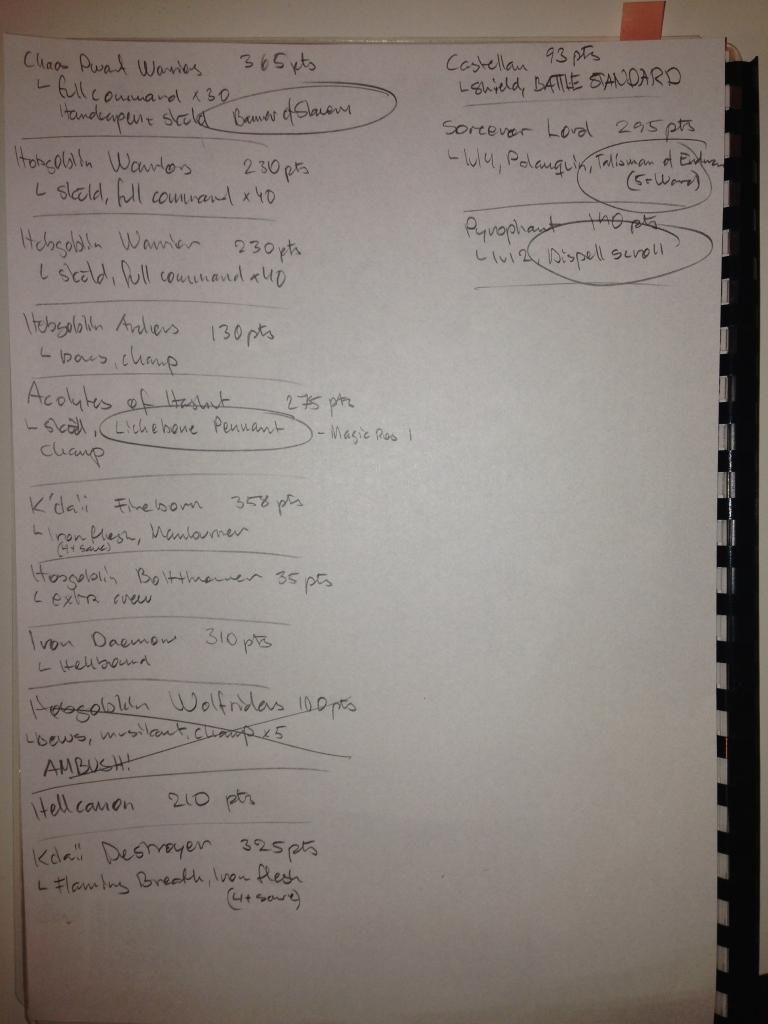 Chaos Dwarf Warriors 365 pts
└ full command x 30
Handweapon & sköld Banner of Slavery
Hobgoblin Warriors 230 pts
└ sköld, full command x 40
Hobgoblin Warrior 230 pts
└ sköld, full command x 40
Hobgoblin Archers 130 pts
└ bows, champ
Acolytes of Hashut 275 pts
└ sköld, Lichebone Pennant - Magic Res 1
champ
K'daii Fireborn 358 pts
└ Iron flesh, Manburner
(4+ save)
Hobgoblin Boltthrower 35 pts
└ extra crew
Iron Daemon 310 pts
└ Hellbound
Hobgoblin Wolfriders 100 pts
└ bows, musikant, champ x 5
AMBUSH!
Hellcanon 210 pts
K'daii Destroyer 325 pts
└ Flaming Breath, Iron flesh
(4+ save)
Castellan 93 pts
└ shield, BATTLE STANDARD
Sorcerer Lord 295 pts
└ lvl 4, Palanquin, Talisman of
(5+ Ward)
Pyrophant 140 pts
└ lvl 2, Dispell scroll